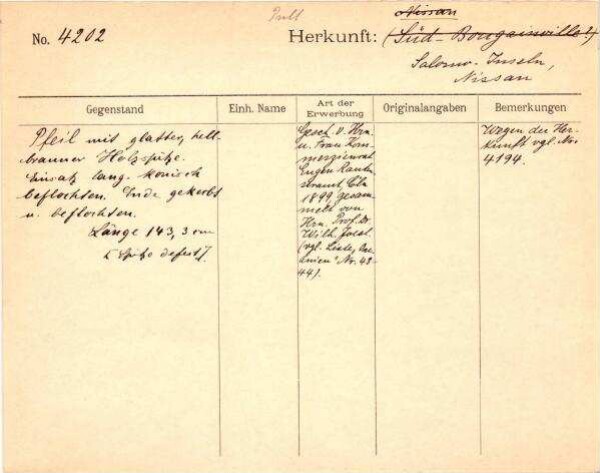 Nissan
No. 4202
Herkunft: (Süd-Bougainville?)
Salomo-Inseln,
Nissan
Gegenstand
Einh. Name
Art der
Erwerbung
Originalangaben
Bemerkungen
Pfeil mit glatter, hell-
brauner Holzspitze.
Einsatz lang-konisch
beflochten. Ende gekerbt
u. beflochten.
Länge 143,3 cm
[Spitze defekt].
Gesch. v. Hrn.
u. Frau Kom-
merzienrat
Eugen Rauten-
strauch, Cöln
1899, gesam-
melt von
Hrn. Prof. Dr.
Wilh. Joest
(vgl. Liste
Nr. 43-
44).
Wegen der Her-
kunft vgl. No.
4194.